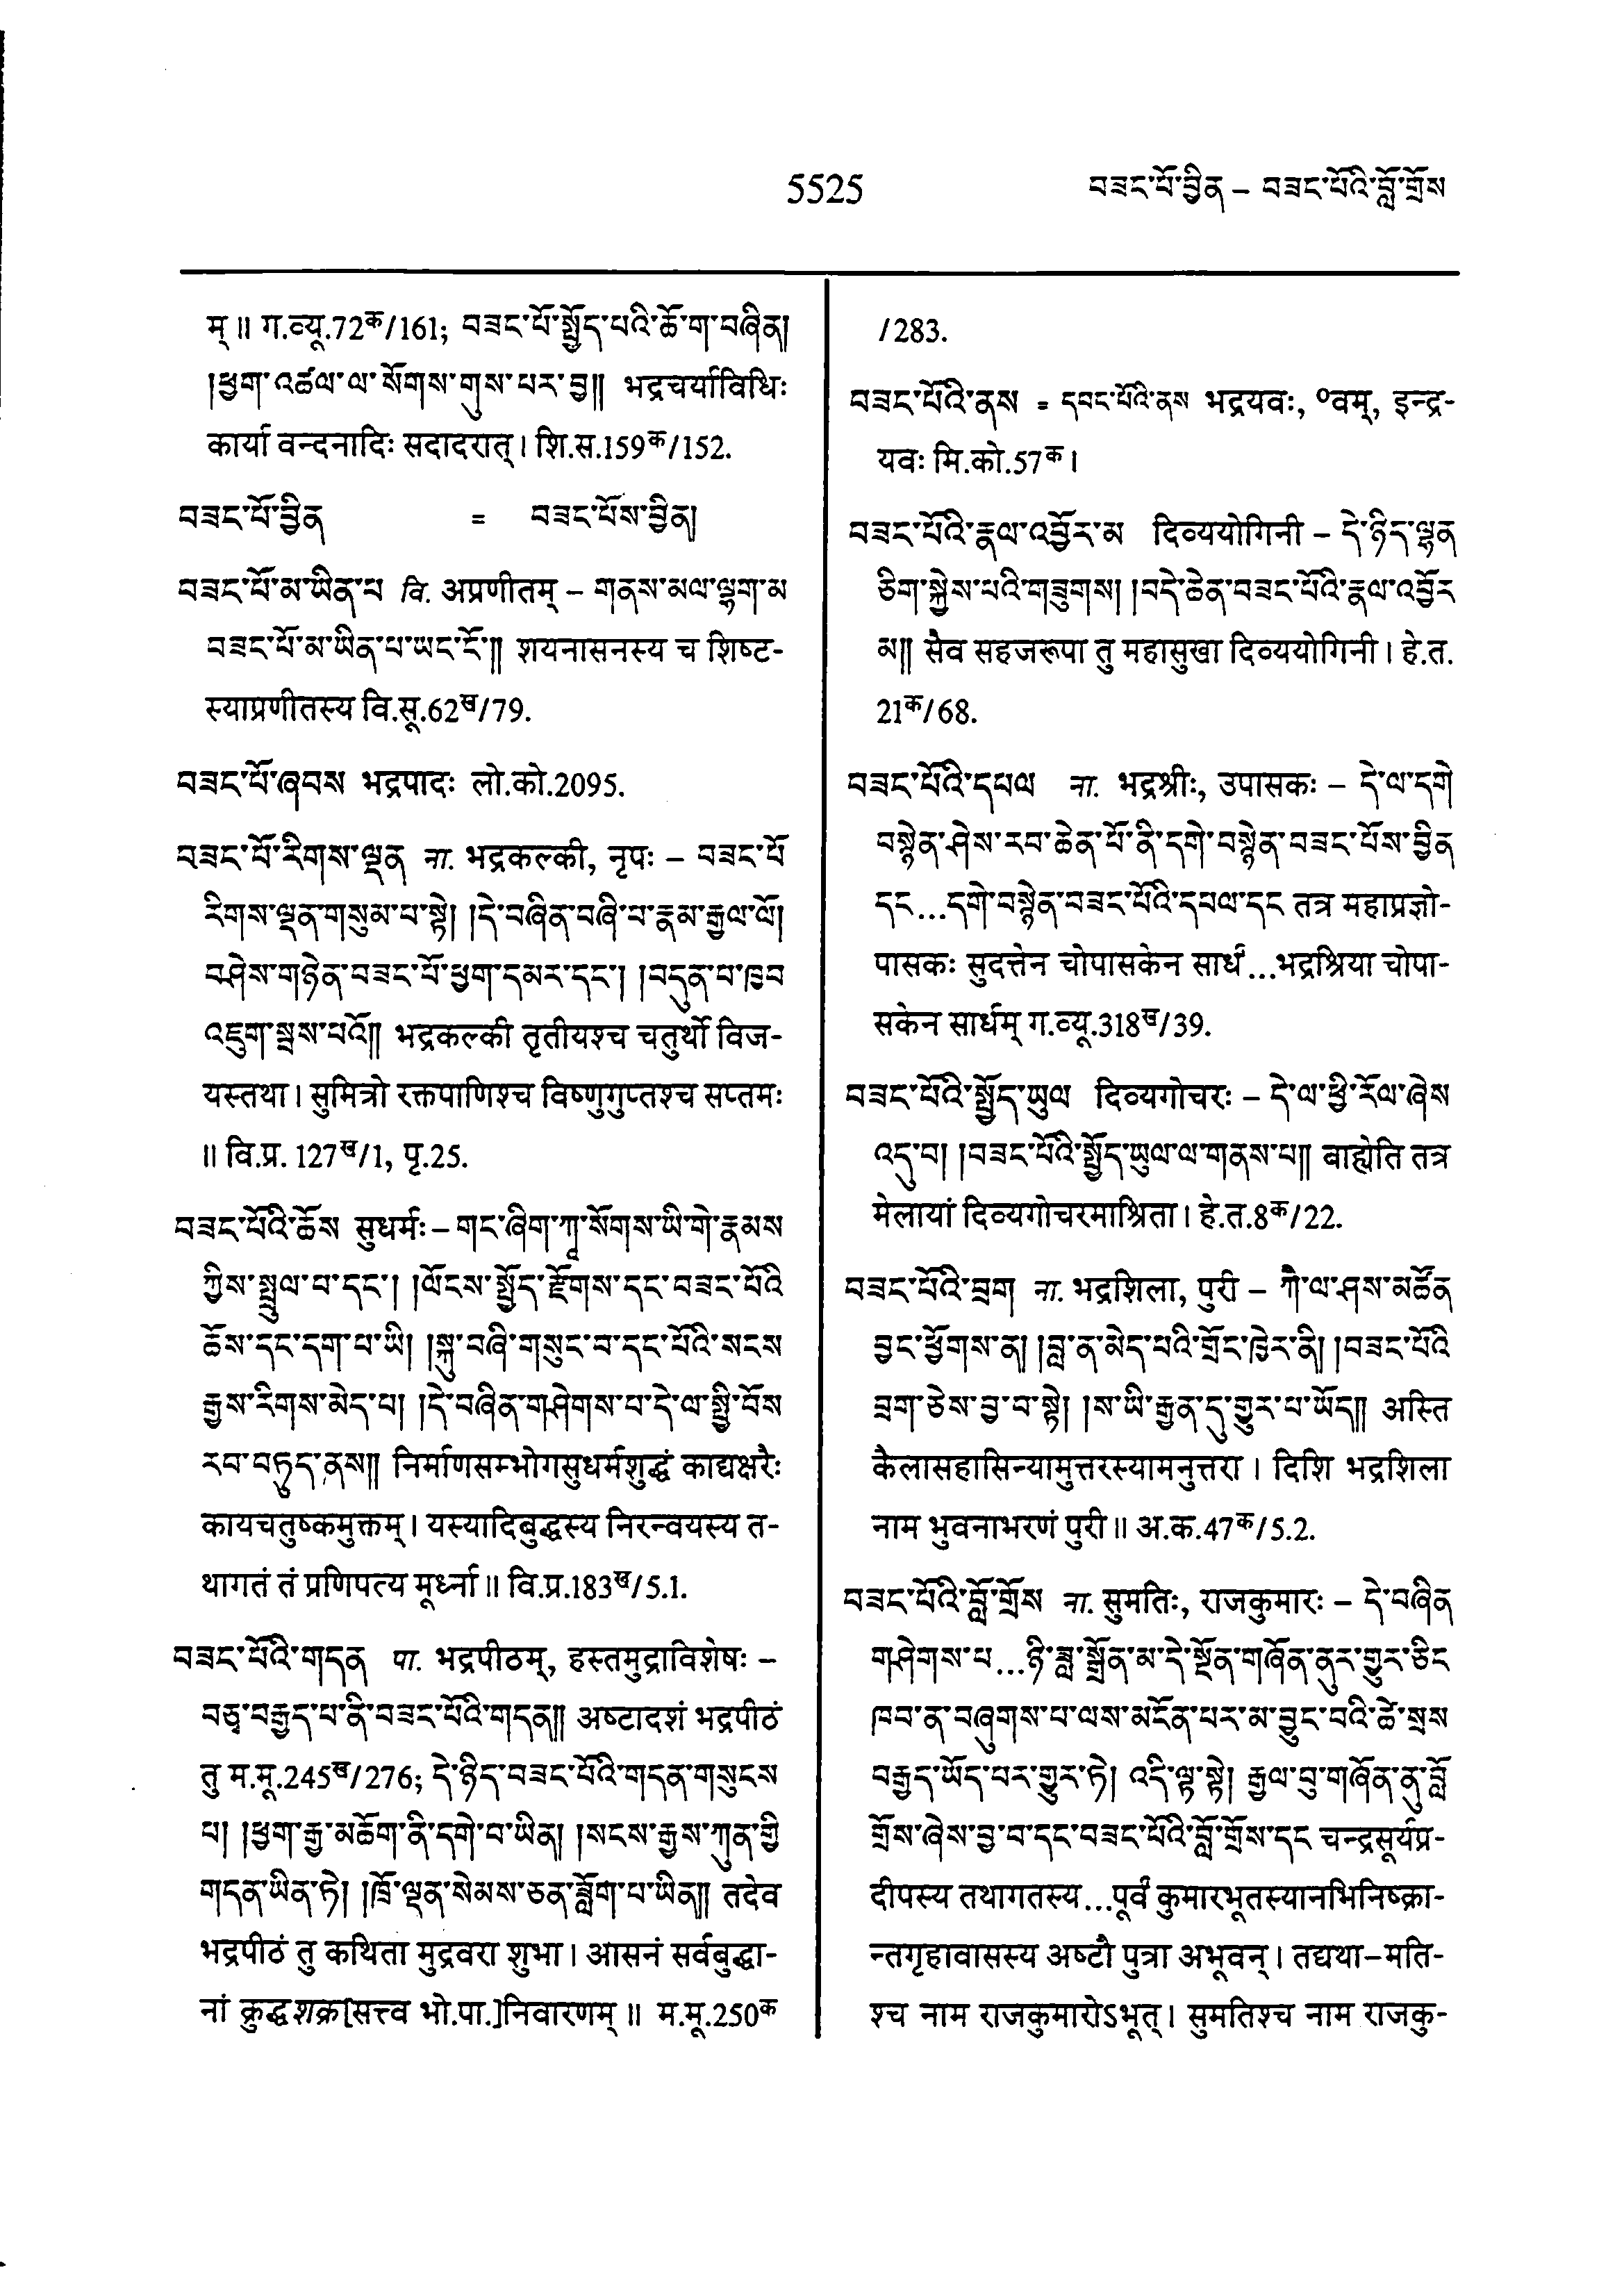 5525
བཟང་པོ་བྱིན – བཟང་པོའི་བློ་གྲོས
म् ॥ ग.व्यू.72क/161; བཟང་པོ་སྤྱོད་པའི་ཆོ་ག་བཞིན།
།ཕྱག་འཚལ་ལ་སོགས་གུས་པར་བྱ།། भद्रचर्याविधिः
कार्या वन्दनादिः सदादरात् । शि.स.159क/152.
བཟང་པོ་བྱིན = བཟང་པོས་བྱིན།
བཟང་པོ་མ་ཡིན་པ वि. अप्रणीतम् – གནས་མལ་ལྷག་མ
བཟང་པོ་མ་ཡིན་པ་ཡང་ངོ་།། शयनासनस्य च शिष्ट-
स्याप्रणीतस्य वि.सू.62ख/79.
བཟང་པོ་ཞབས भद्रपादः लो.को.2095.
བཟང་པོ་རིགས་ལྡན ना. भद्रकल्की, नृपः – བཟང་པོ
རིགས་ལྡན་གསུམ་པ་སྟེ། །དེ་བཞིན་བཞི་པ་རྣམ་རྒྱལ་ལོ།
བཤེས་གཉེན་བཟང་པོ་ཕྱག་དམར་དང་། །བདུན་པ་ཁྱབ
འཇུག་སྦས་པའོ།། भद्रकल्की तृतीयश्च चतुर्थो विज-
यस्तथा । सुमित्रो रक्तपाणिश्च विष्णुगुप्तश्च सप्तमः
॥ वि.प्र. 127ख/1, पृ.25.
བཟང་པོའི་ཆོས सुधर्मः – གང་ཞིག་ཀཱ་སོགས་ཡི་གེ་རྣམས
ཀྱིས་སྤྲུལ་པ་དང་། །ལོངས་སྤྱོད་རྫོགས་དང་བཟང་པོའི
ཆོས་དང་དག་པ་ཡི། །སྐུ་བཞི་གསུང་བ་དང་པོའི་སངས
རྒྱས་རིགས་མེད་པ། །དེ་བཞིན་གཤེགས་པ་དེ་ལ་སྤྱི་བོས
རབ་བཏུད་ནས།། निर्माणसम्भोगसुधर्मशुद्धं काद्यक्षरैः
कायचतुष्कमुक्तम् । यस्यादिबुद्धस्य निरन्वयस्य त-
थागतं तं प्रणिपत्य मूर्ध्ना ॥ वि.प्र.183ख/5.1.
བཟང་པོའི་གདན पा. भद्रपीठम्, हस्तमुद्राविशेषः –
བཅྭ་བརྒྱད་པ་ནི་བཟང་པོའི་གདན།། अष्टादशं भद्रपीठं
तु म.मू.245ख/276; དེ་ཉིད་བཟང་པོའི་གདན་གསུངས
པ། །ཕྱག་རྒྱ་མཆོག་ནི་དགེ་བ་ཡིན། །སངས་རྒྱས་ཀུན་གྱི
གདན་ཡིན་ཏེ། །ཁྲོ་ལྡན་སེམས་ཅན་བློག་པ་ཡིན།། तदेव
भद्रपीठं तु कथिता मुद्रवरा शुभा । आसनं सर्वबुद्धा-
नां क्रुद्धशक्र[सत्त्व भो.पा.]निवारणम् ॥ म.मू.250क
/283.
བཟང་པོའི་ནས = དབང་པོའི་ནས भद्रयवः, ०वम्, इन्द्र-
यवः मि.को.57क ।
བཟང་པོའི་རྣལ་འབྱོར་མ दिव्ययोगिनी – དེ་ཉིད་ལྷན
ཅིག་སྐྱེས་པའི་གཟུགས། །བདེ་ཆེན་བཟང་པོའི་རྣལ་འབྱོར
མ།། सैव सहजरूपा तु महासुखा दिव्ययोगिनी । हे.त.
21क/68.
བཟང་པོའི་དཔལ ना. भद्रश्रीः, उपासकः – དེ་ལ་དགེ
བསྙེན་ཤེས་རབ་ཆེན་པོ་ནི་དགེ་བསྙེན་བཟང་པོས་བྱིན
དང...དགེ་བསྙེན་བཟང་པོའི་དཔལ་དང तत्र महाप्रज्ञो-
पासकः सुदत्तेन चोपासकेन सार्धं...भद्रश्रिया चोपा-
सकेन सार्धम् ग.व्यू.318ख/39.
བཟང་པོའི་སྤྱོད་ཡུལ दिव्यगोचरः – དེ་ལ་ཕྱི་རོལ་ཞེས
འདུ་བ། །བཟང་པོའི་སྤྱོད་ཡུལ་ལ་གནས་པ།། वाह्येति तत्र
मेलायां दिव्यगोचरमाश्रिता । हे.त.8क/22.
བཟང་པོའི་བྲག ना. भद्रशिला, पुरी – ཀཻ་ལ་ཤས་མཚོན
བྱང་ཕྱོགས་ན། །བླ་ན་མེད་པའི་གྲོང་ཁྱེར་ནི། །བཟང་པོའི
བྲག་ཅེས་བྱ་བ་སྟེ། །ས་ཡི་རྒྱན་དུ་གྱུར་པ་ཡོད།། अस्ति
कैलासहासिन्यामुत्तरस्यामनुत्तरा । दिशि भद्रशिला
नाम भुवनाभरणं पुरी ॥ अ.क.47क/5.2.
བཟང་པོའི་བློ་གྲོས ना. सुमतिः, राजकुमारः – དེ་བཞིན
གཤེགས་པ...ཉི་ཟླ་སྒྲོན་མ་དེ་སྔོན་གཞོན་ནུར་གྱུར་ཅིང
ཁབ་ན་བཞུགས་པ་ལས་མངོན་པར་མ་བྱུང་བའི་ཚེ་སྲས
བརྒྱད་ཡོད་པར་གྱུར་ཏེ། འདི་ལྟ་སྟེ། རྒྱལ་བུ་གཞོན་ནུ་བློ
གྲོས་ཞེས་བྱ་བ་དང་བཟང་པོའི་བློ་གྲོས་དང चन्द्रसूर्यप्र-
दीपस्य तथागतस्य...पूर्वं कुमारभूतस्यानभिनिष्क्रा-
न्तगृहावासस्य अष्टौ पुत्रा अभूवन् । तद्यथा–मति-
श्च नाम राजकुमारोऽभूत् । सुमतिश्च नाम राजकु-